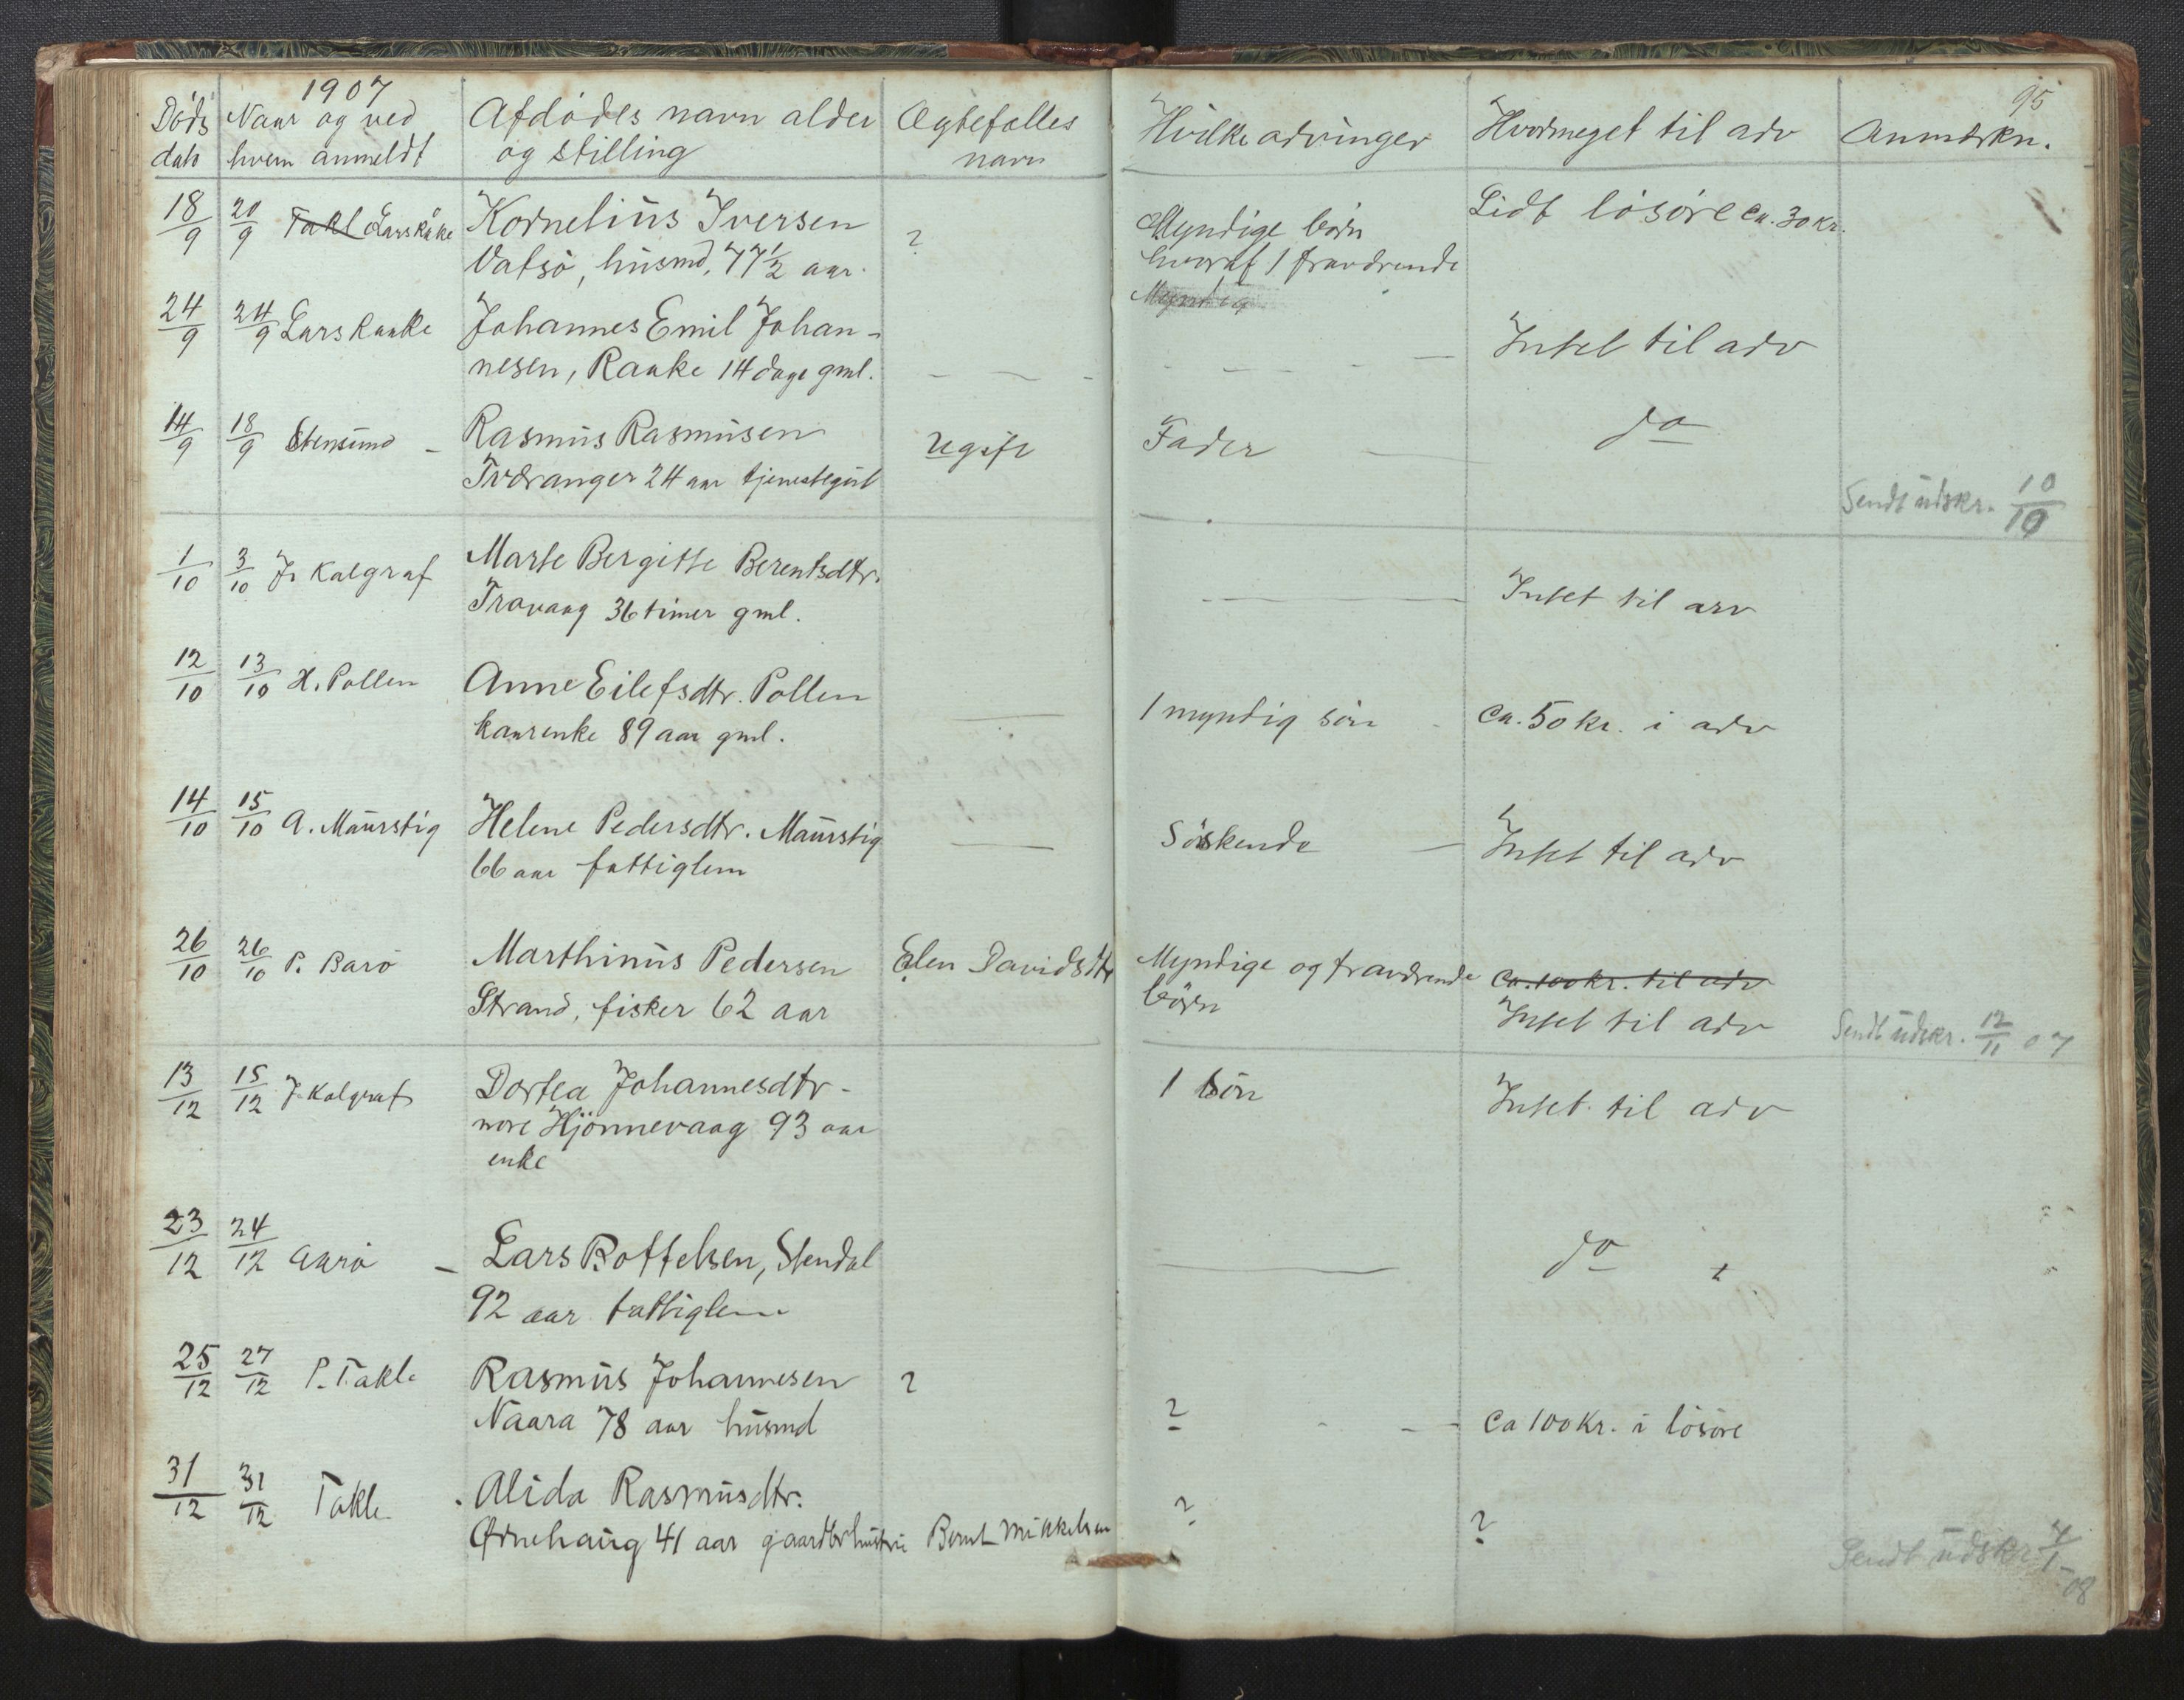 1907
95
Döds Naar og ved Afdödes navn alder Ægtefælles Hvilke arvinger Hvormeget til arv Anmerkn.
dato hvem anmeldt og stilling navn
18/9 20/9 Takl Lars Råke Kornelius Iversen ? Myndige börn Lidt lösöre ca. 30 kr.
Vatsö, husmd, 77½ aar. hvoraf 1 fraværende
Myndig
24/9 24/9 Lars Raake Johannes Emil Johan- Intet til arv
nesen, Raake 14 dage gml.
14/9 18/9 Stensund - Rasmus Rasmusen ugift Fader do
Tværanger 24 aar tjenestegut
Sendt udskr. 10/10
1/10 3/10 J. Kalgraf Marte Bergitte Berentsdtr.
Travaag 36 timer gml. Intet til arv
12/10 13/10 H. Pollen Anne Eilefsdtr. Pollen
kaarenke 89 aar gml. 1 myndig sön - Ca. 50 kr. i arv
14/10 15/10 A. Maurstig Helene Pedersdtr. Maurstig Söskende - Intet til arv
66 aar fattiglem
26/10 26/10 P. Barö Marthinus Pedersen Elen Davidsdtr Myndige og fraværende Ca. 100 kr. til arv
Strand, fisker 62 aar börn Intet til arv Sendt udskr. 12/11 07
13/12 15/12 J. Kalgraf Dortea Johannesdtr - 1 sön Intet til arv
nore Hjönnevaag 93 aar
enke
23/12 24/12 Aarö - Lars Bottelsen, Stendal do
92 aar fattiglem
25/12 27/12 P. Takle Rasmus Johannesen ?
Naara 78 aar husmd ? - - Ca 100 Kr. i lösöre
31/12 31/12 Takle . Alida Rasmusdtr. ? ?
Ørnehaug 41 aar gaardbrhustru Bernt Mikkelsen
Sendt udskr 4/1-08